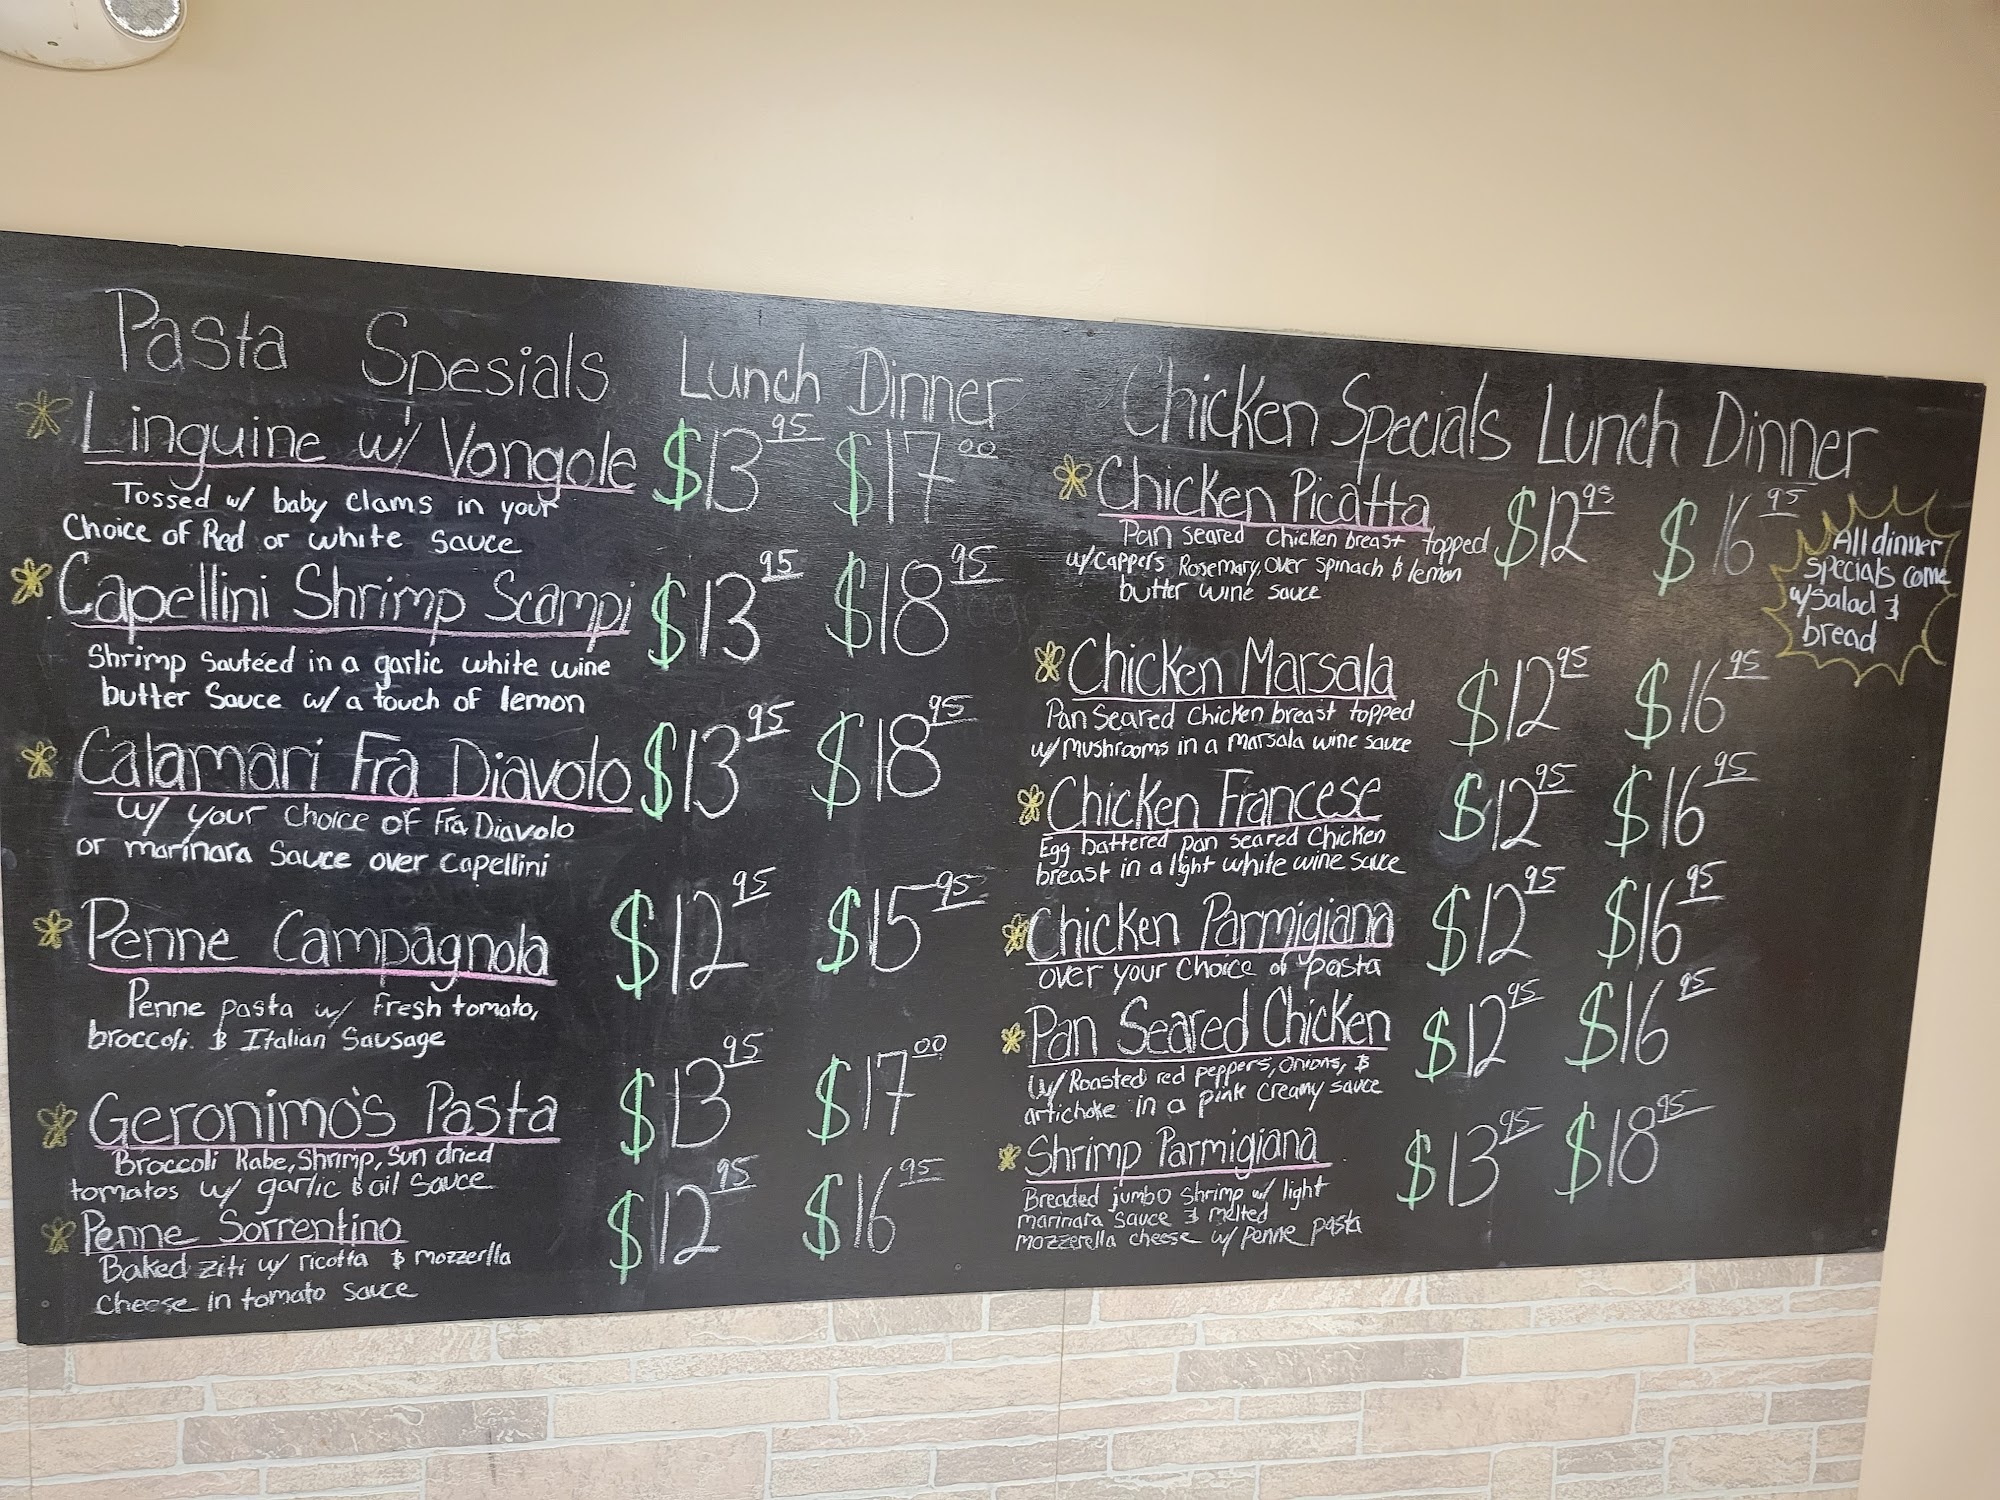 Pasta Spesials Lunch Dinner
Linguine w/ Vongole $13 95 $17 00
Tossed w/ baby clams in your
Choice of Red or white sauce
Capellini Shrimp Scampi $13 95 $18 95
Shrimp Sautéed in a garlic white wine
butter Sauce w/ a touch of lemon
Calamari Fra Diavolo $13 95 $18 95
w/ your choice of Fra Diavolo
or marinara sauce over capellini
Penne Campagnola $12 95 $15 95
Penne pasta w/ Fresh tomato,
broccoli. & Italian Sausage
Geronimo's Pasta $13 95 $17 00
Broccoli Rabe, Shrimp, Sun dried
tomatos w/ garlic & oil Sauce
Penne Sorrentino $12 95 $16 95
Baked ziti w/ ricotta & mozzerlla
cheese in tomato sauce
Chicken Specials Lunch Dinner
Chicken Picatta $12 95 $16 95
Pan seared chicken breast topped
w/cappers Rosemary, over spinach & lemon
butter wine sauce
Chicken Marsala $12 95 $16 95
Pan Seared Chicken breast topped
w/ Mushrooms in a Marsala wine sauce
Chicken Francese $12 95 $16 95
Egg battered pan seared Chicken
breast in a light white wine sauce
Chicken Parmigiana $12 95 $16 95
over your choice of pasta
Pan Seared Chicken $12 95 $16 95
w/ Roasted red peppers, onions, &
artichoke in a pink creamy sauce
Shrimp Parmigiana $13 95 $18 95
Breaded jumbo shrimp w/ light
marinara sauce & melted
mozzerella cheese w/ penne pasta
All dinner
specials come
w/salad &
bread